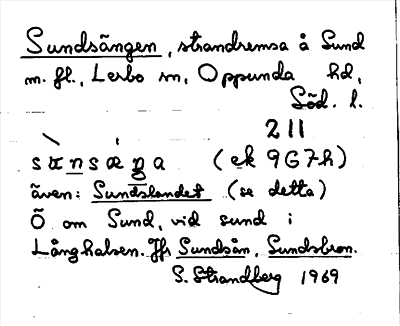 Sundsängen, strandremsa å Sund
m. fl., Lerbo sn, Oppunda hd,
Söd. l.
211
sɪnsæŋa (ek 9G7h)
även: Sundslandet (se detta)
Ö om Sund, vid sund i
Långhalsen. Jfr Sundsån, Sundsbron.
S. Strandberg 1969